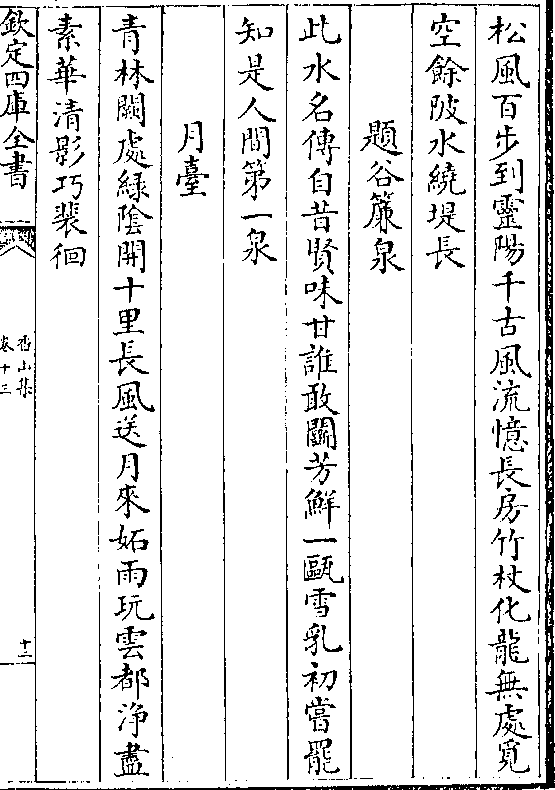 松風百步到靈陽千古風流憶長房竹杖化龍無處覓
空餘陂水繞堤長
題谷簾泉
此水名傳自昔賢味甘誰敢鬭芳鮮一甌雪乳初嘗罷
知是人間第一泉
月臺
青林闕處緑陰開十里長風送月來妬雨玩雲都浄盡
素華清影巧裴徊
欽定四庫全書
香山集
卷十三
十二